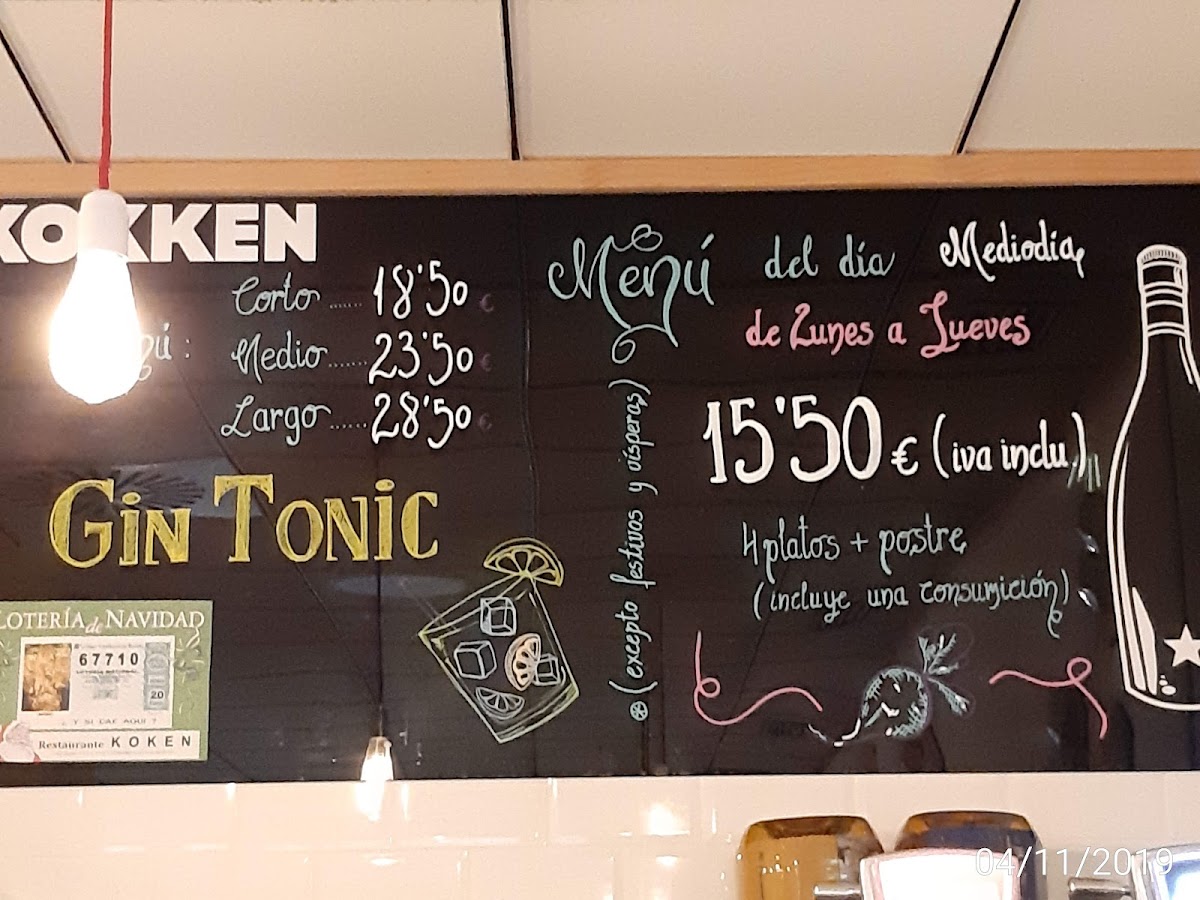 KOKKEN
Corto ...... 18'50 €
ú : Medio ...... 23'50 €
Largo ...... 28'50 €
GIN TONIC
LOTERÍA de NAVIDAD
67710
20
¿Y SI CAE AQUÍ?
Restaurante KOKEN
Menú del día Mediodía
de Lunes a Jueves
15'50 € (iva inclu.)
4 platos + postre
(incluye una consumición)
* (excepto festivos y vísperas)
04/11/2019